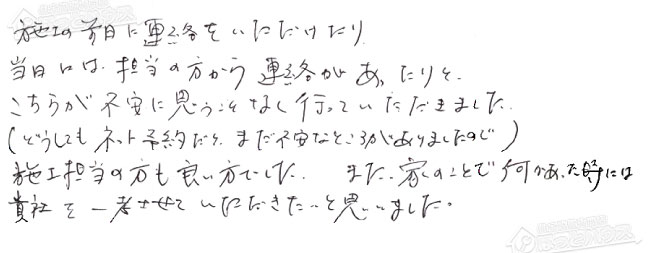 施工の前日に連絡をいただけたり
当日には、担当の方から連絡があったりと、
こちらが不安に思うことなく行っていただきました。
(どうしてもネット予約だと、まだ不安なところがありましたので)
施工担当の方も良い方でした。また、家のことで何かあった時には
貴社を一考させていただきたいと思いました。